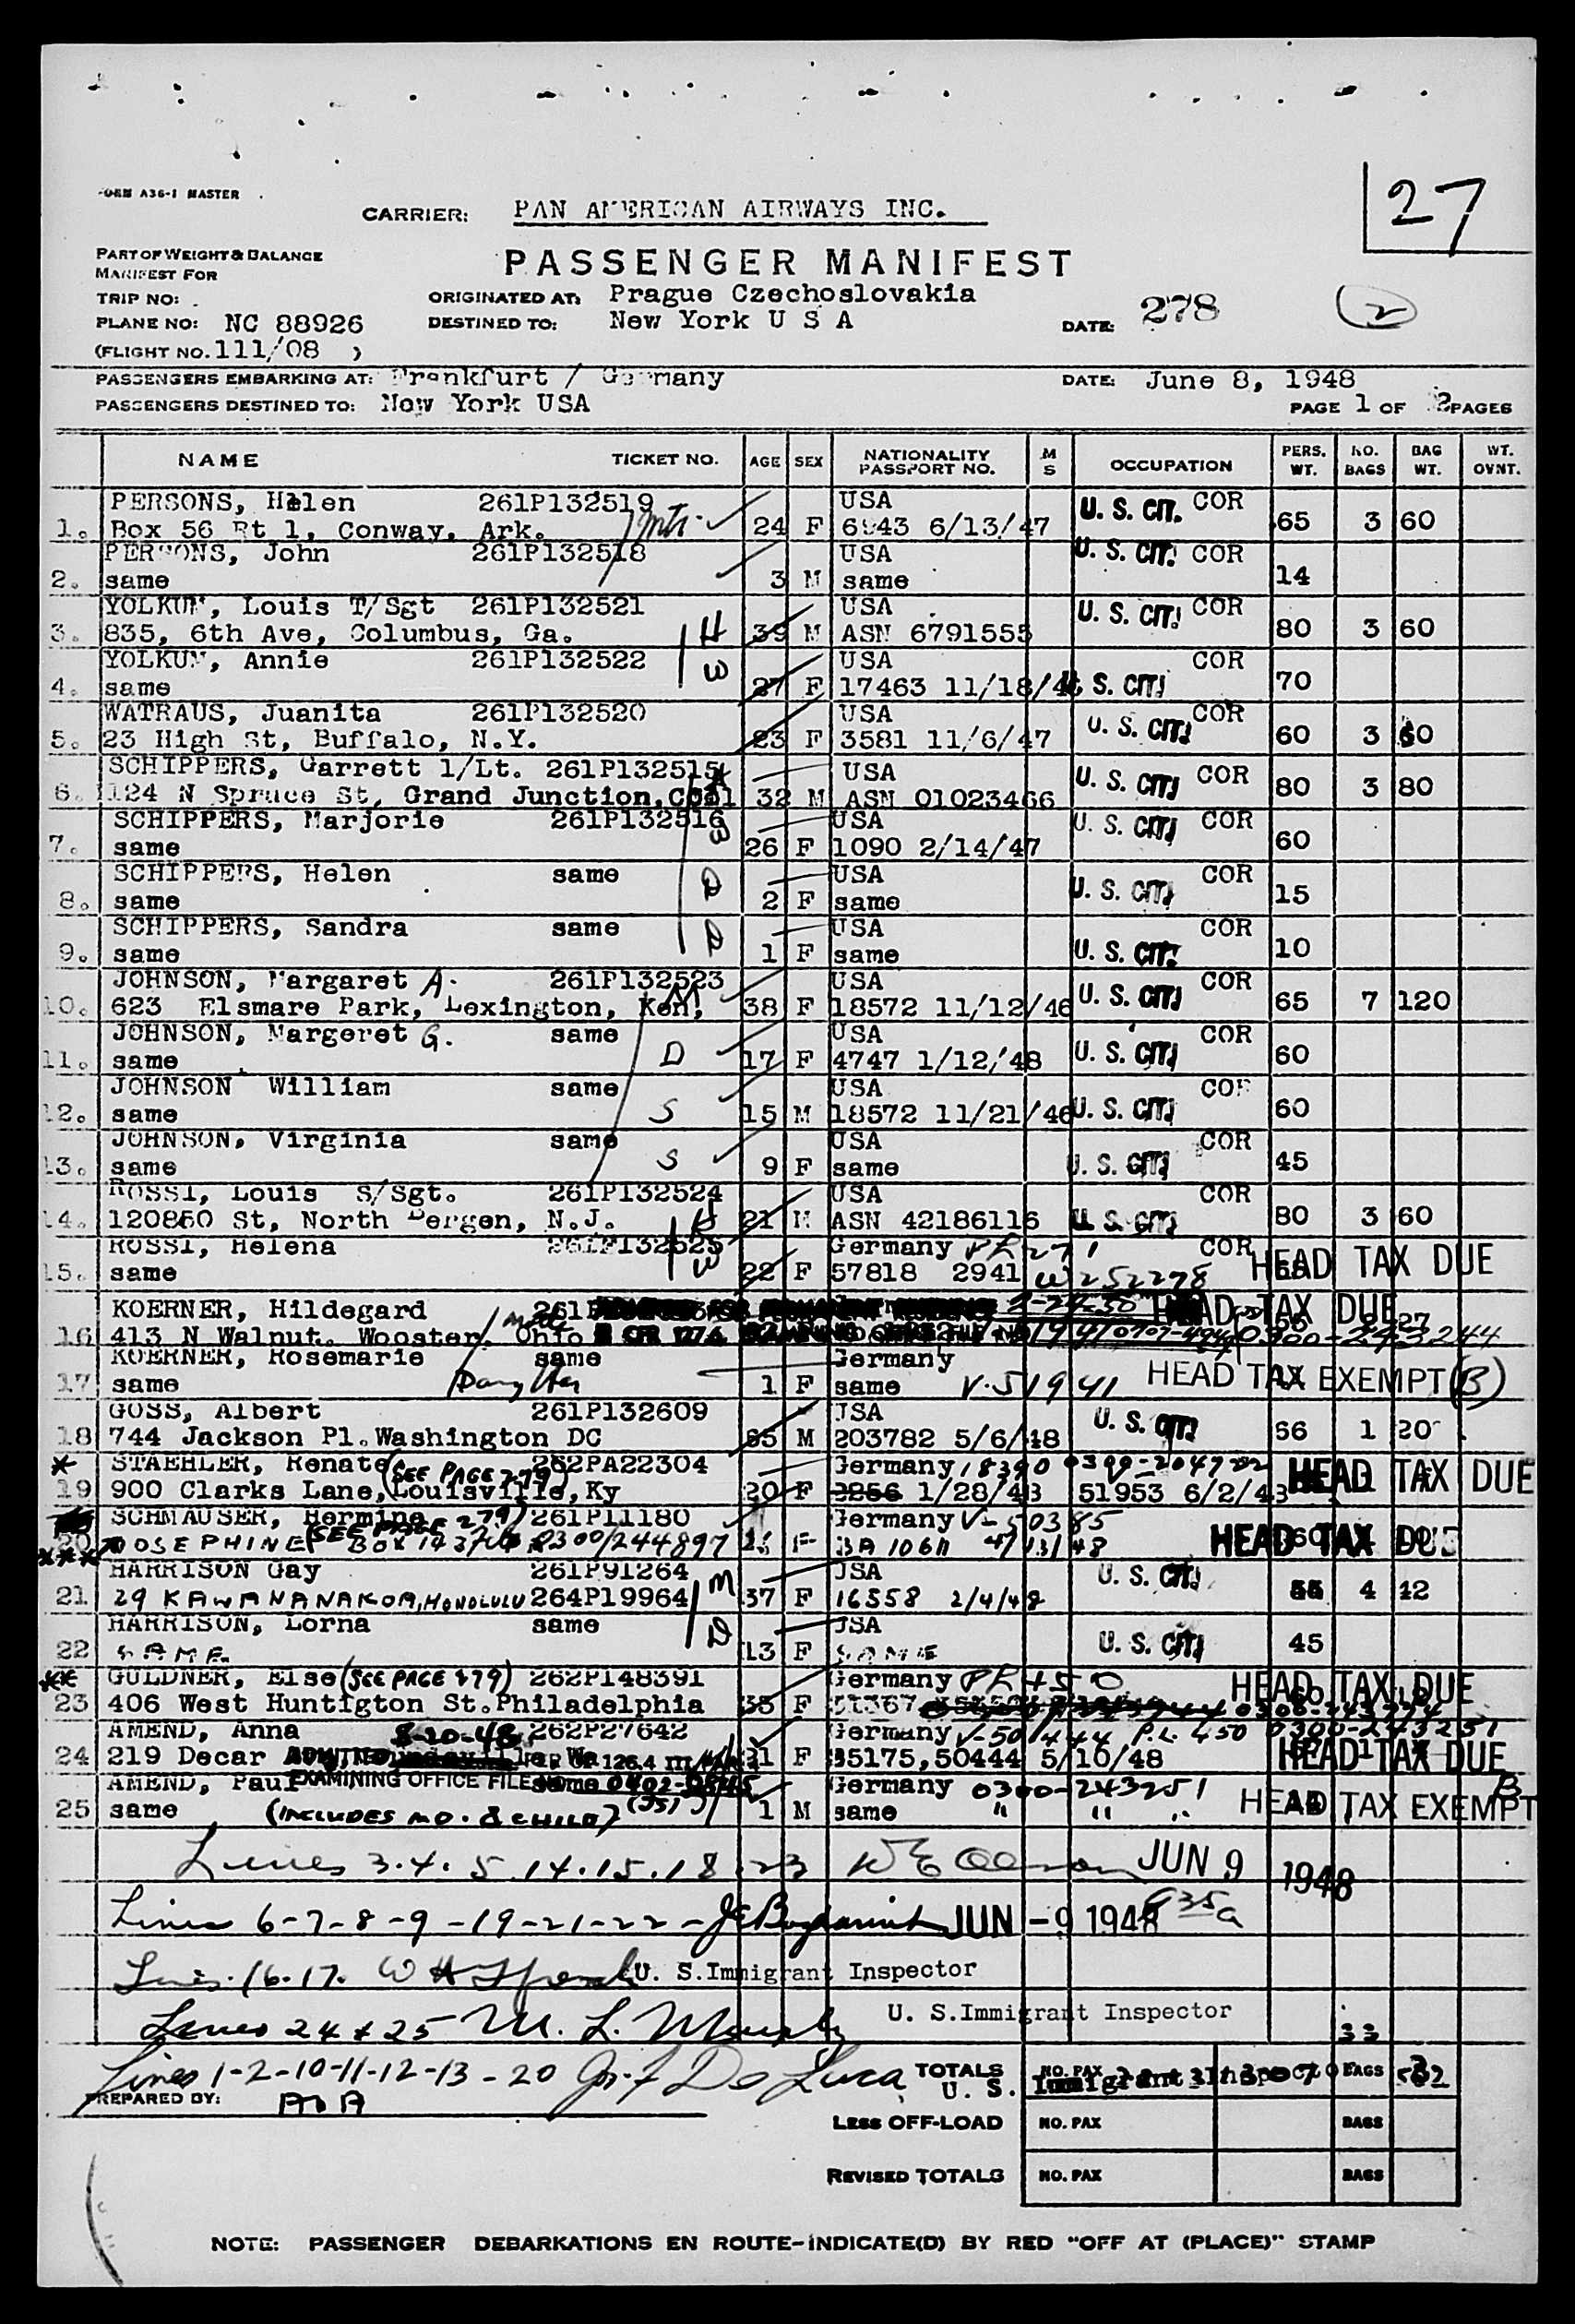 FORM A36-1 MASTER
27
CARRIER: PAN AMERICAN AIRWAYS INC.
PART OF WEIGHT & BALANCE
MANIFEST FOR
PASSENGER MANIFEST
TRIP NO:
ORIGINATED AT: Prague Czechoslovakia
278
2
PLANE NO: NC 88926
DESTINED TO: New York U S A
DATE:
(FLIGHT NO. 111/08 )
PASSENGERS EMBARKING AT: Frankfurt / Germany
DATE: June 8, 1948
PASSENGERS DESTINED TO: New York USA
PAGE 1 OF 2 PAGES
NAME TICKET NO. AGE SEX NATIONALITY PASSPORT NO. M S OCCUPATION PERS. WT. NO. BAGS BAG WT. WT. OVNT.
PERSONS, Helen 261P132519 USA U. S. CIT. COR
1. Box 56 Rt 1, Conway, Ark. 24 F 6943 6/13/47 65 3 60
PERSONS, John 261P132518 USA U. S. CIT. COR
2. same 3 M same 14
YOLKUM, Louis T/Sgt 261P132521 USA U. S. CIT. COR
3. 835, 6th Ave, Columbus, Ga. H 39 M ASN 6791555 80 3 60
YOLKUM, Annie 261P132522 W USA COR
4. same 27 F 17463 11/18/46 U. S. CIT. 70
WATRAUS, Juanita 261P132520 USA U. S. CIT. COR
5. 23 High St, Buffalo, N.Y. 23 F 3581 11/6/47 60 3 60
SCHIPPERS, Garrett 1/Lt. 261P132515 H USA U. S. CIT. COR
6. 124 N Spruce St, Grand Junction, Col 32 M ASN 01023466 80 3 80
SCHIPPERS, Marjorie 261P132516 W USA U. S. CIT. COR
7. same 26 F 1090 2/14/47 60
SCHIPPERS, Helen same D USA COR
8. same 2 F same U. S. CIT. 15
SCHIPPERS, Sandra same D USA COR
9. same 1 F same U. S. CIT. 10
JOHNSON, Margaret A. 261P132523 USA COR
10. 623 Elsmare Park, Lexington, Ken, M 38 F 18572 11/12/46 U. S. CIT. 65 7 120
JOHNSON, Margeret G. same USA COR
11. same D 17 F 4747 1/12/48 U. S. CIT. 60
JOHNSON William same USA COR
12. same S 15 M 18572 11/21/46 U. S. CIT. 60
JOHNSON, Virginia same USA COR
13. same S 9 F same U. S. CIT. 45
ROSSI, Louis S/Sgt. 261P132524 USA COR
14. 120860 St, North Bergen, N.J. H 21 M ASN 42186116 U. S. CIT. 80 3 60
ROSSI, Helena 261P132525 Germany COR HEAD TAX DUE
15. same W 22 F 57818 2941
KOERNER, Hildegard HEAD TAX DUE 27
16 413 N Walnut. Wooster, Ohio 0300-243244
KOERNER, Rosemarie same Germany HEAD TAX EXEMPT (B)
17 same Daughter 1 F same V-51941
GOSS, Albert 261P132609 USA U. S. CIT.
18 744 Jackson Pl. Washington DC 65 M 203782 5/6/48 66 1 20
* STAEHLER, Renate (SEE PAGE 279) 262PA22304 Germany 18390 HEAD TAX DUE
19 900 Clarks Lane, Louisville, Ky 20 F 2256 1/28/48 51953 6/2/48
SCHMAUSER, Hermine (SEE PAGE 279) 261P11180 Germany V-50385 HEAD TAX DUE
20 JOSEPHINE 0300/244897 F BA 10611
HARRISON Gay 261P91264 M USA U. S. CIT.
21 29 KAWANANAKOA, HONOLULU 264P19964 37 F 16558 2/4/48 55 4 42
HARRISON, Lorna same D USA
22 SAME 13 F SAME U. S. CIT. 45
** GULDNER, Else (SEE PAGE 279) 262P148391 Germany HEAD TAX DUE
23 406 West Huntigton St. Philadelphia 35 F
AMEND, Anna 8-20-48 262P27642 Germany P.L. 450 0300-243251
24 219 Decar 31 F 35175, 50444 5/10/48 HEAD TAX DUE
AMEND, Paul EXAMINING OFFICE FILE NO. same Germany 0300-243251 B
25 same (INCLUDES MO. & CHILD) 1 M same " " " HEAD TAX EXEMPT
Lines 3. 4. 5 14. 15. 18. 23 JUN 9 1948
Lines 6-7-8-9-19-21-22- JUN -9 1948 935a
Lines. 16. 17. U. S. Immigrant Inspector
Lines 24 & 25 M. L. U. S. Immigrant Inspector
33
Lines 1-2-10-11-12-13-20 De Luca TOTALS NO. PAX BAGS
U. S. Immigrant Inspector
PREPARED BY:
LESS OFF-LOAD NO. PAX BAGS
REVISED TOTALS NO. PAX BAGS
NOTE: PASSENGER DEBARKATIONS EN ROUTE-INDICATE(D) BY RED "OFF AT (PLACE)" STAMP